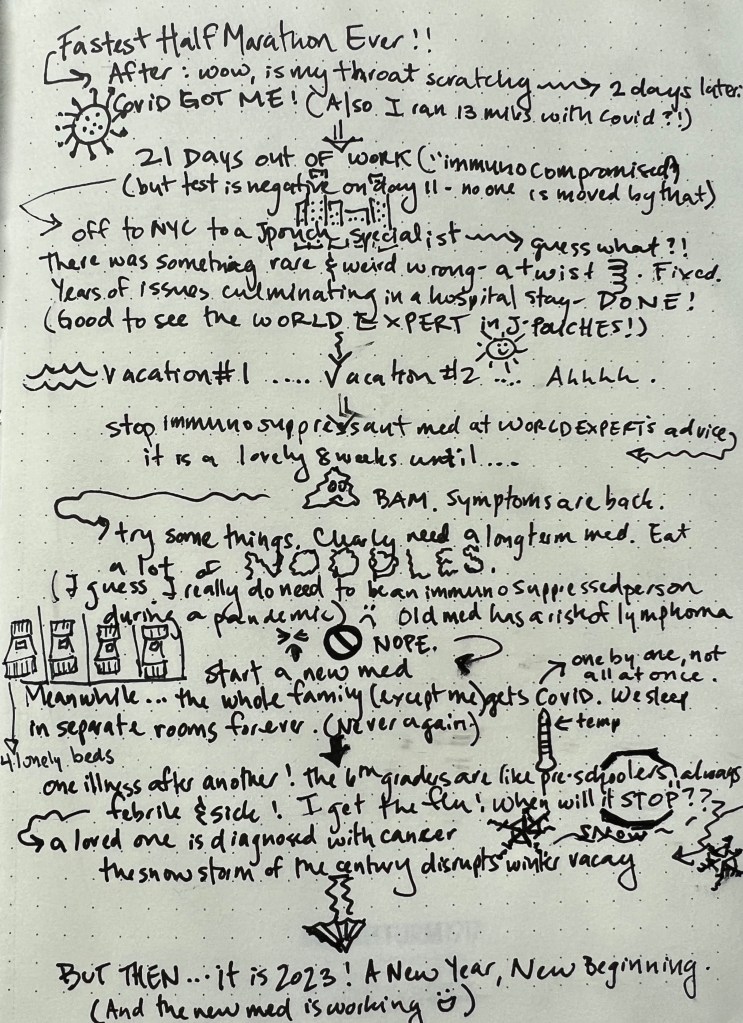 Fastest Half Marathon Ever!!
After: wow, is my throat scratchy → 2 days later:
Covid GOT ME! (Also I ran 13 miles with covid?!)
21 Days out OF WORK ("immunocompromised")
(but test is negative on day 11 - no one is moved by that)
off to NYC to a Jpouch specialist → guess what?!
There was something rare & weird wrong - a twist. Fixed.
Years of issues culminating in a hospital stay - DONE!
(Good to see the WORLD EXPERT in J-POUCHES!)
Vacation #1 ..... Vacation #2 .... Ahhhh.
stop immunosuppressant med at WORLD EXPERT's advice
it is a lovely 8 weeks until....
BAM. Symptoms are back.
try some things. Clearly need a longterm med. Eat
a lot of NOODLES.
(I guess I really do need to be an immunosuppressed person
during a pandemic) Old med has a risk of lymphoma
NOPE.
start a new med
one by one, not
all at once.
Meanwhile... the whole family (except me) gets Covid. We sleep
in separate rooms forever. (Never again)
← temp
4 lonely beds
one illness after another! the 6th graders are like pre-schoolers, always
febrile & sick! I get the flu! When will it STOP??
a loved one is diagnosed with cancer
SNOW
the snow storm of the century disrupts winter vacay
BUT THEN... it is 2023! A New Year, New Beginning.
(And the new med is working)